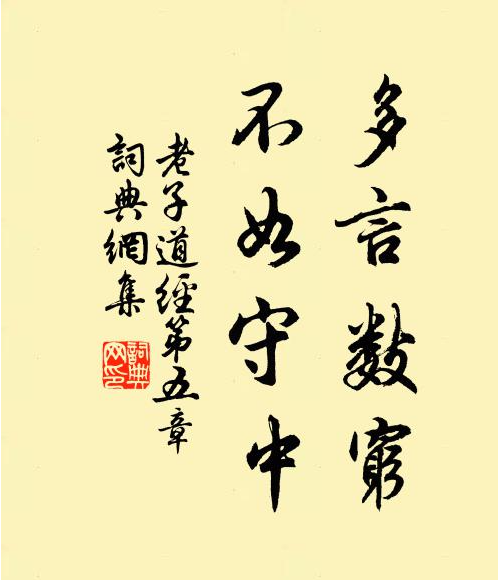 多言數窮
不如守中
老子道經第五章
詞典網集
詞典網印